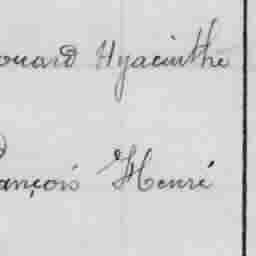 ouard Hyacinthe
ançois Henri